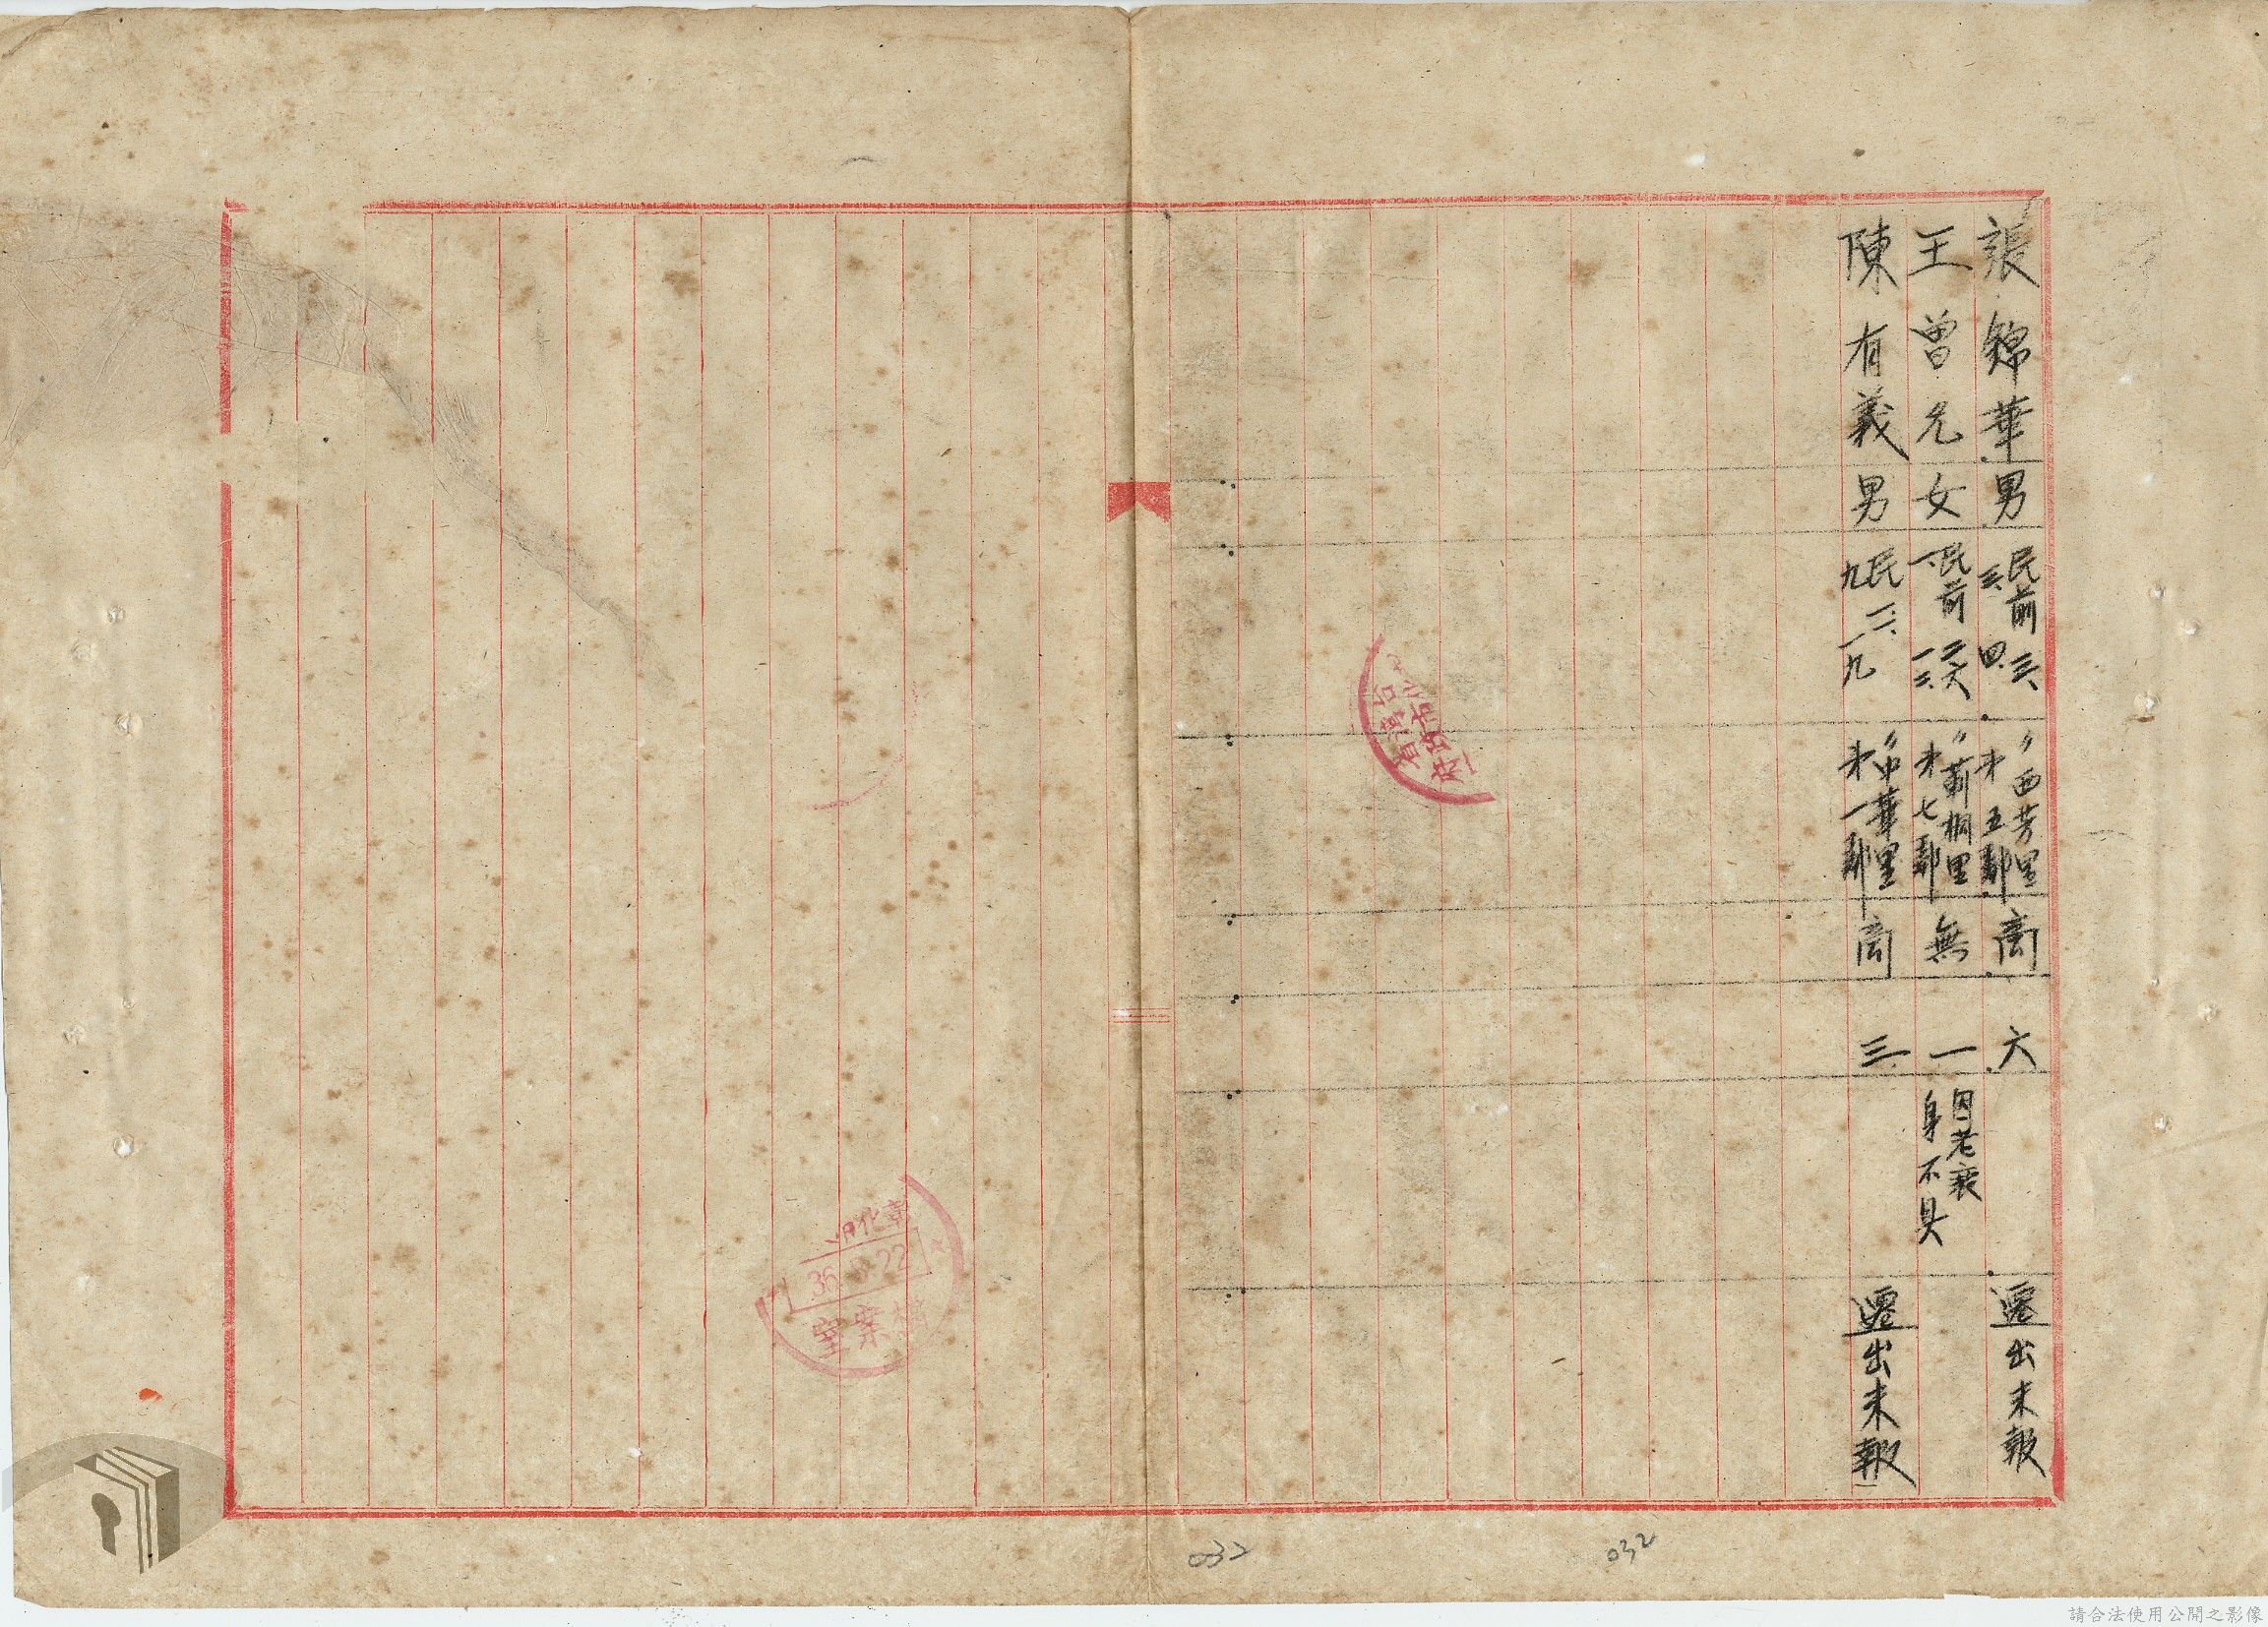 張錦華 男 民前三、三、四、 〃西芳里才五鄰 商 六 遷出未報
王曾允 女 民前一、二六一三、 〃前桐里才七鄰 無 一 因老衰身不具
陳有義 男 民九一二、一九 〃中華里才一鄰 商 三 遷出未報
台灣省
市政府
彰化市
36 22
檔案室
032
032
請合法使用公開之影像